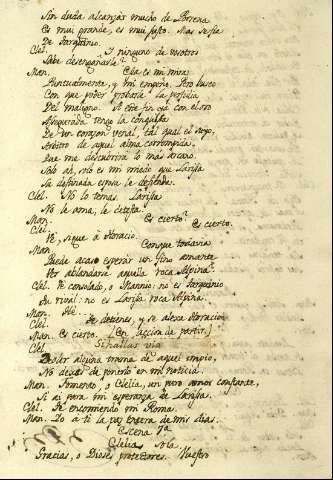 Sin duda alcanzar mucho de Porsena
Es mui grande, es mui justo. Mas se fia
De Tarquinio.
Clel. Y ninguno de vosotros
Sabe desengañarle?
Man. Esa es mi mira
Puntualmente, y mi empeño. Pero busco
Con que poder probarle la perfidia
Del maligno. A este fin ya con el oro
Asegurada tengo la conquista
De un corazon venal, tal qual el suyo,
Arbitro de aquel alma corrompida,
Que me descubrirá lo más arcano.
Solo ay, solo es mi miedo que Larisa
Su destinada esposa le defienda.
Clel. No lo temas. Larisa
No le ama, le detesta.
Man. Es cierto?
Clel. Es cierto.
Ve, sigue á Horacio.
Man. Conque todavia
Puede acaso esperár un fino amante
Ver ablandarse aquella roca Alpina?
Clel. Ve consolado, o Mannio: no es Tarquinio
Su rival: no es Larisa roca Alpina.
Man. Ah!
Clel. Te detienes, y se alexa Horacio
Man. Es cierto. (En accion de partir.)
Clel. Si hallas via
De dár alguna trama de aquel impio,
No dexes de ponerlo en mi noticia.
Man. Fomenta, o Clelia, un puro amor constante,
Si ai para mi esperanza de Larisa.
Clel. Te encomiendo mi Roma.
Man. Yo a ti la paz entera de mis dias.
Escena 7ª
Clelia sola
Gracias, o Dioses protectores. Vuestro